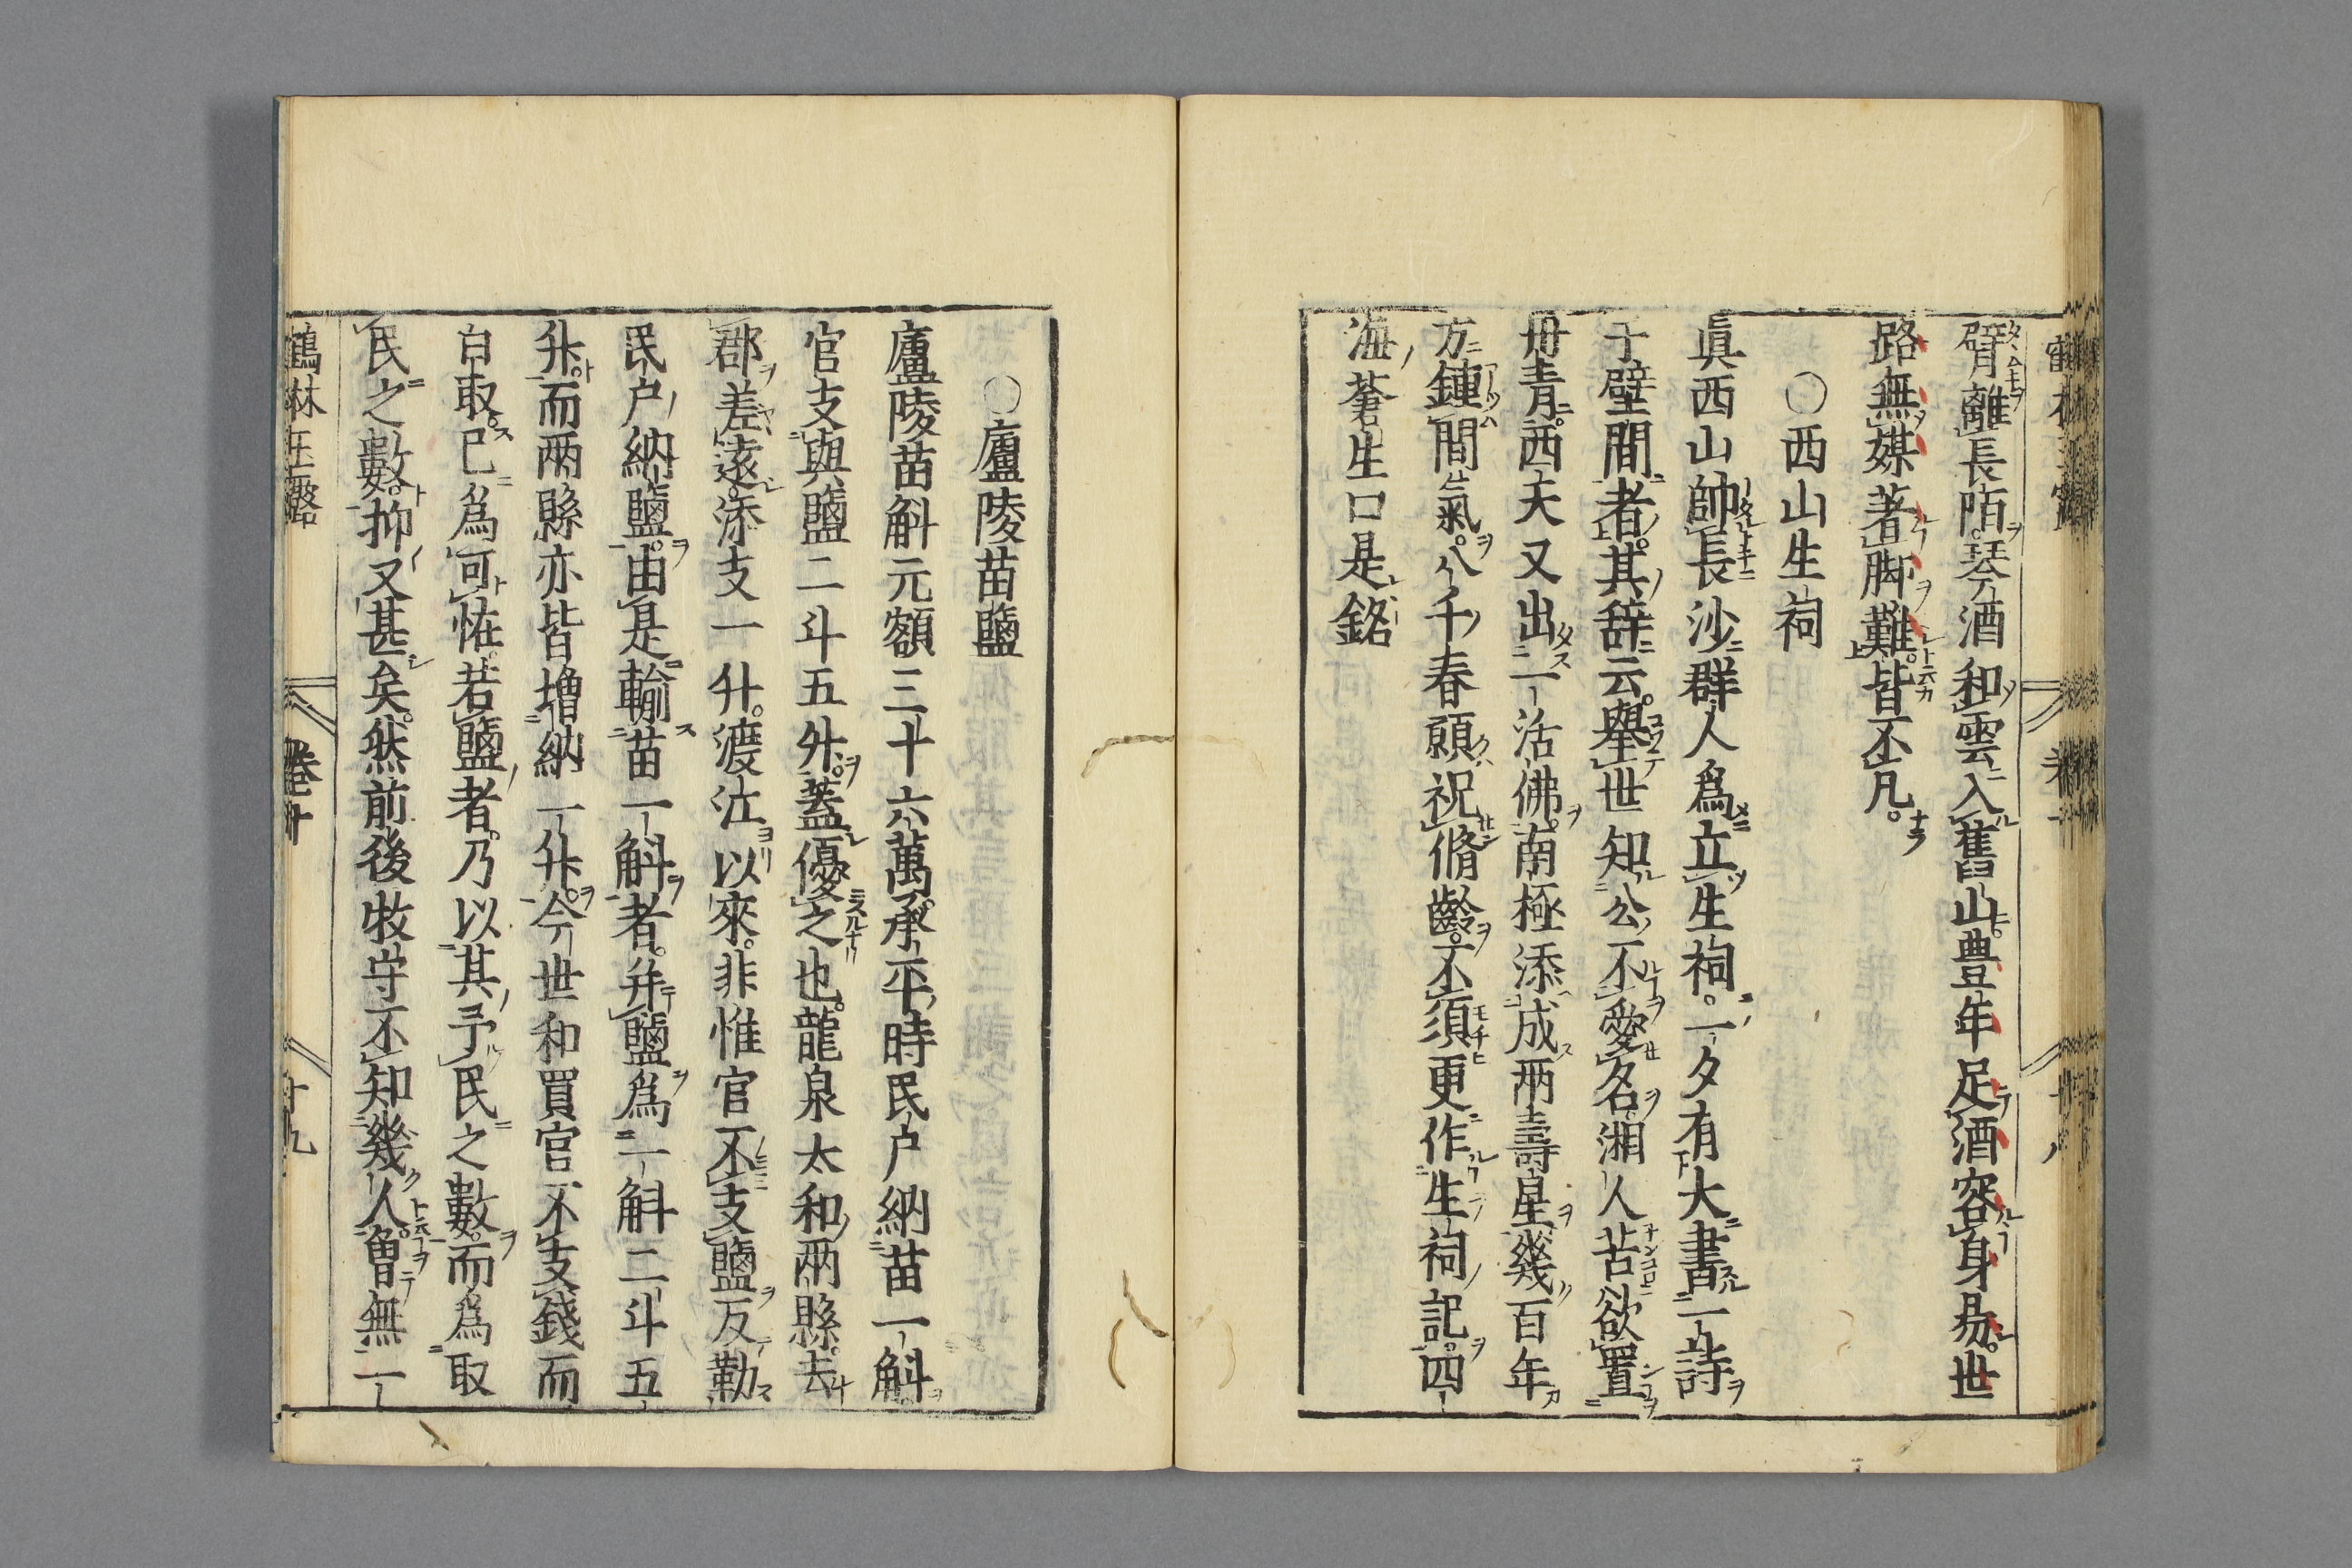 臂離長陌琴酒和雲入舊山豊年足酒容身易世
路無媒著脚難皆不凡
〇西山生祠
眞西山帥長沙群人爲立生祠一夕有大書一詩
于壁間者其辞云舉世知公不愛名湘人苦欲置
丹青西天又出一活佛南極添成兩壽星幾百年
方鍾間氣八千春願祝脩齡不須更作生祠記四
海蒼生口是銘
〇廬陵苗鹽
廬陵苗斛元額三十六萬承平時民户納苗一斛
官支與鹽二斗五升蓋優之也龍泉太和兩縣去
郡差遠添支一升渡江以來非惟官不支鹽反勒
民户納鹽由是輸苗一斛者并鹽爲一斛二斗五
升而兩縣亦皆增納一升今世和買官不支錢而
白取已爲可怪若鹽者乃以其予民之數而爲取
民之數抑又甚矣然前後牧守不知幾人曾無一
鶴林玉露
卷十
十九